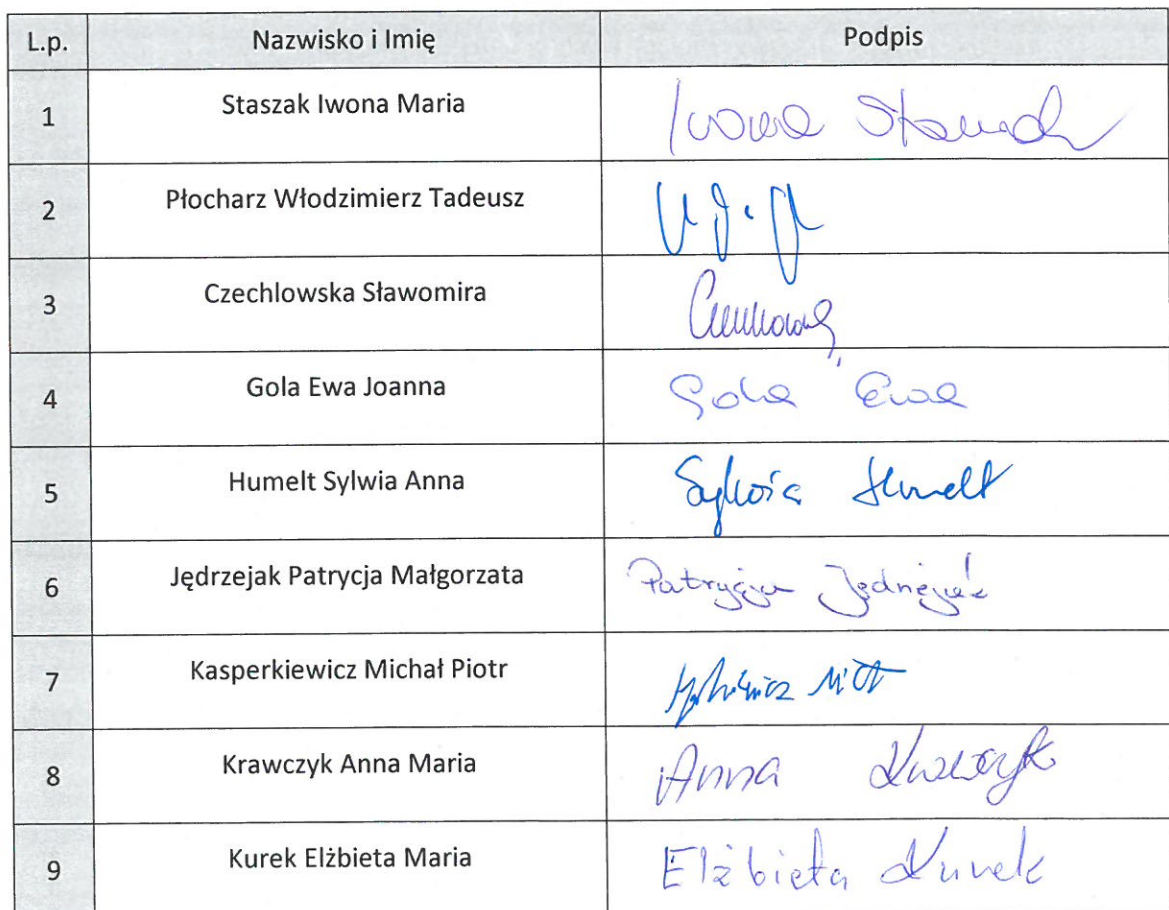 L.p. Nazwisko i Imię Podpis
1 Staszak Iwona Maria Iwona Staszak
2 Płocharz Włodzimierz Tadeusz
3 Czechlowska Sławomira
4 Gola Ewa Joanna Gola Ewa
5 Humelt Sylwia Anna Sylwia Humelt
6 Jędrzejak Patrycja Małgorzata Patrycja Jędrzejak
7 Kasperkiewicz Michał Piotr
8 Krawczyk Anna Maria Anna Krawczyk
9 Kurek Elżbieta Maria Elżbieta Kurek